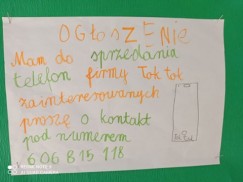 OGŁOSZENIE
Mam do sprzedania
telefon firmy Tok tok
zainteresowanych
proszę o kontakt
pod numerem
606 815 118